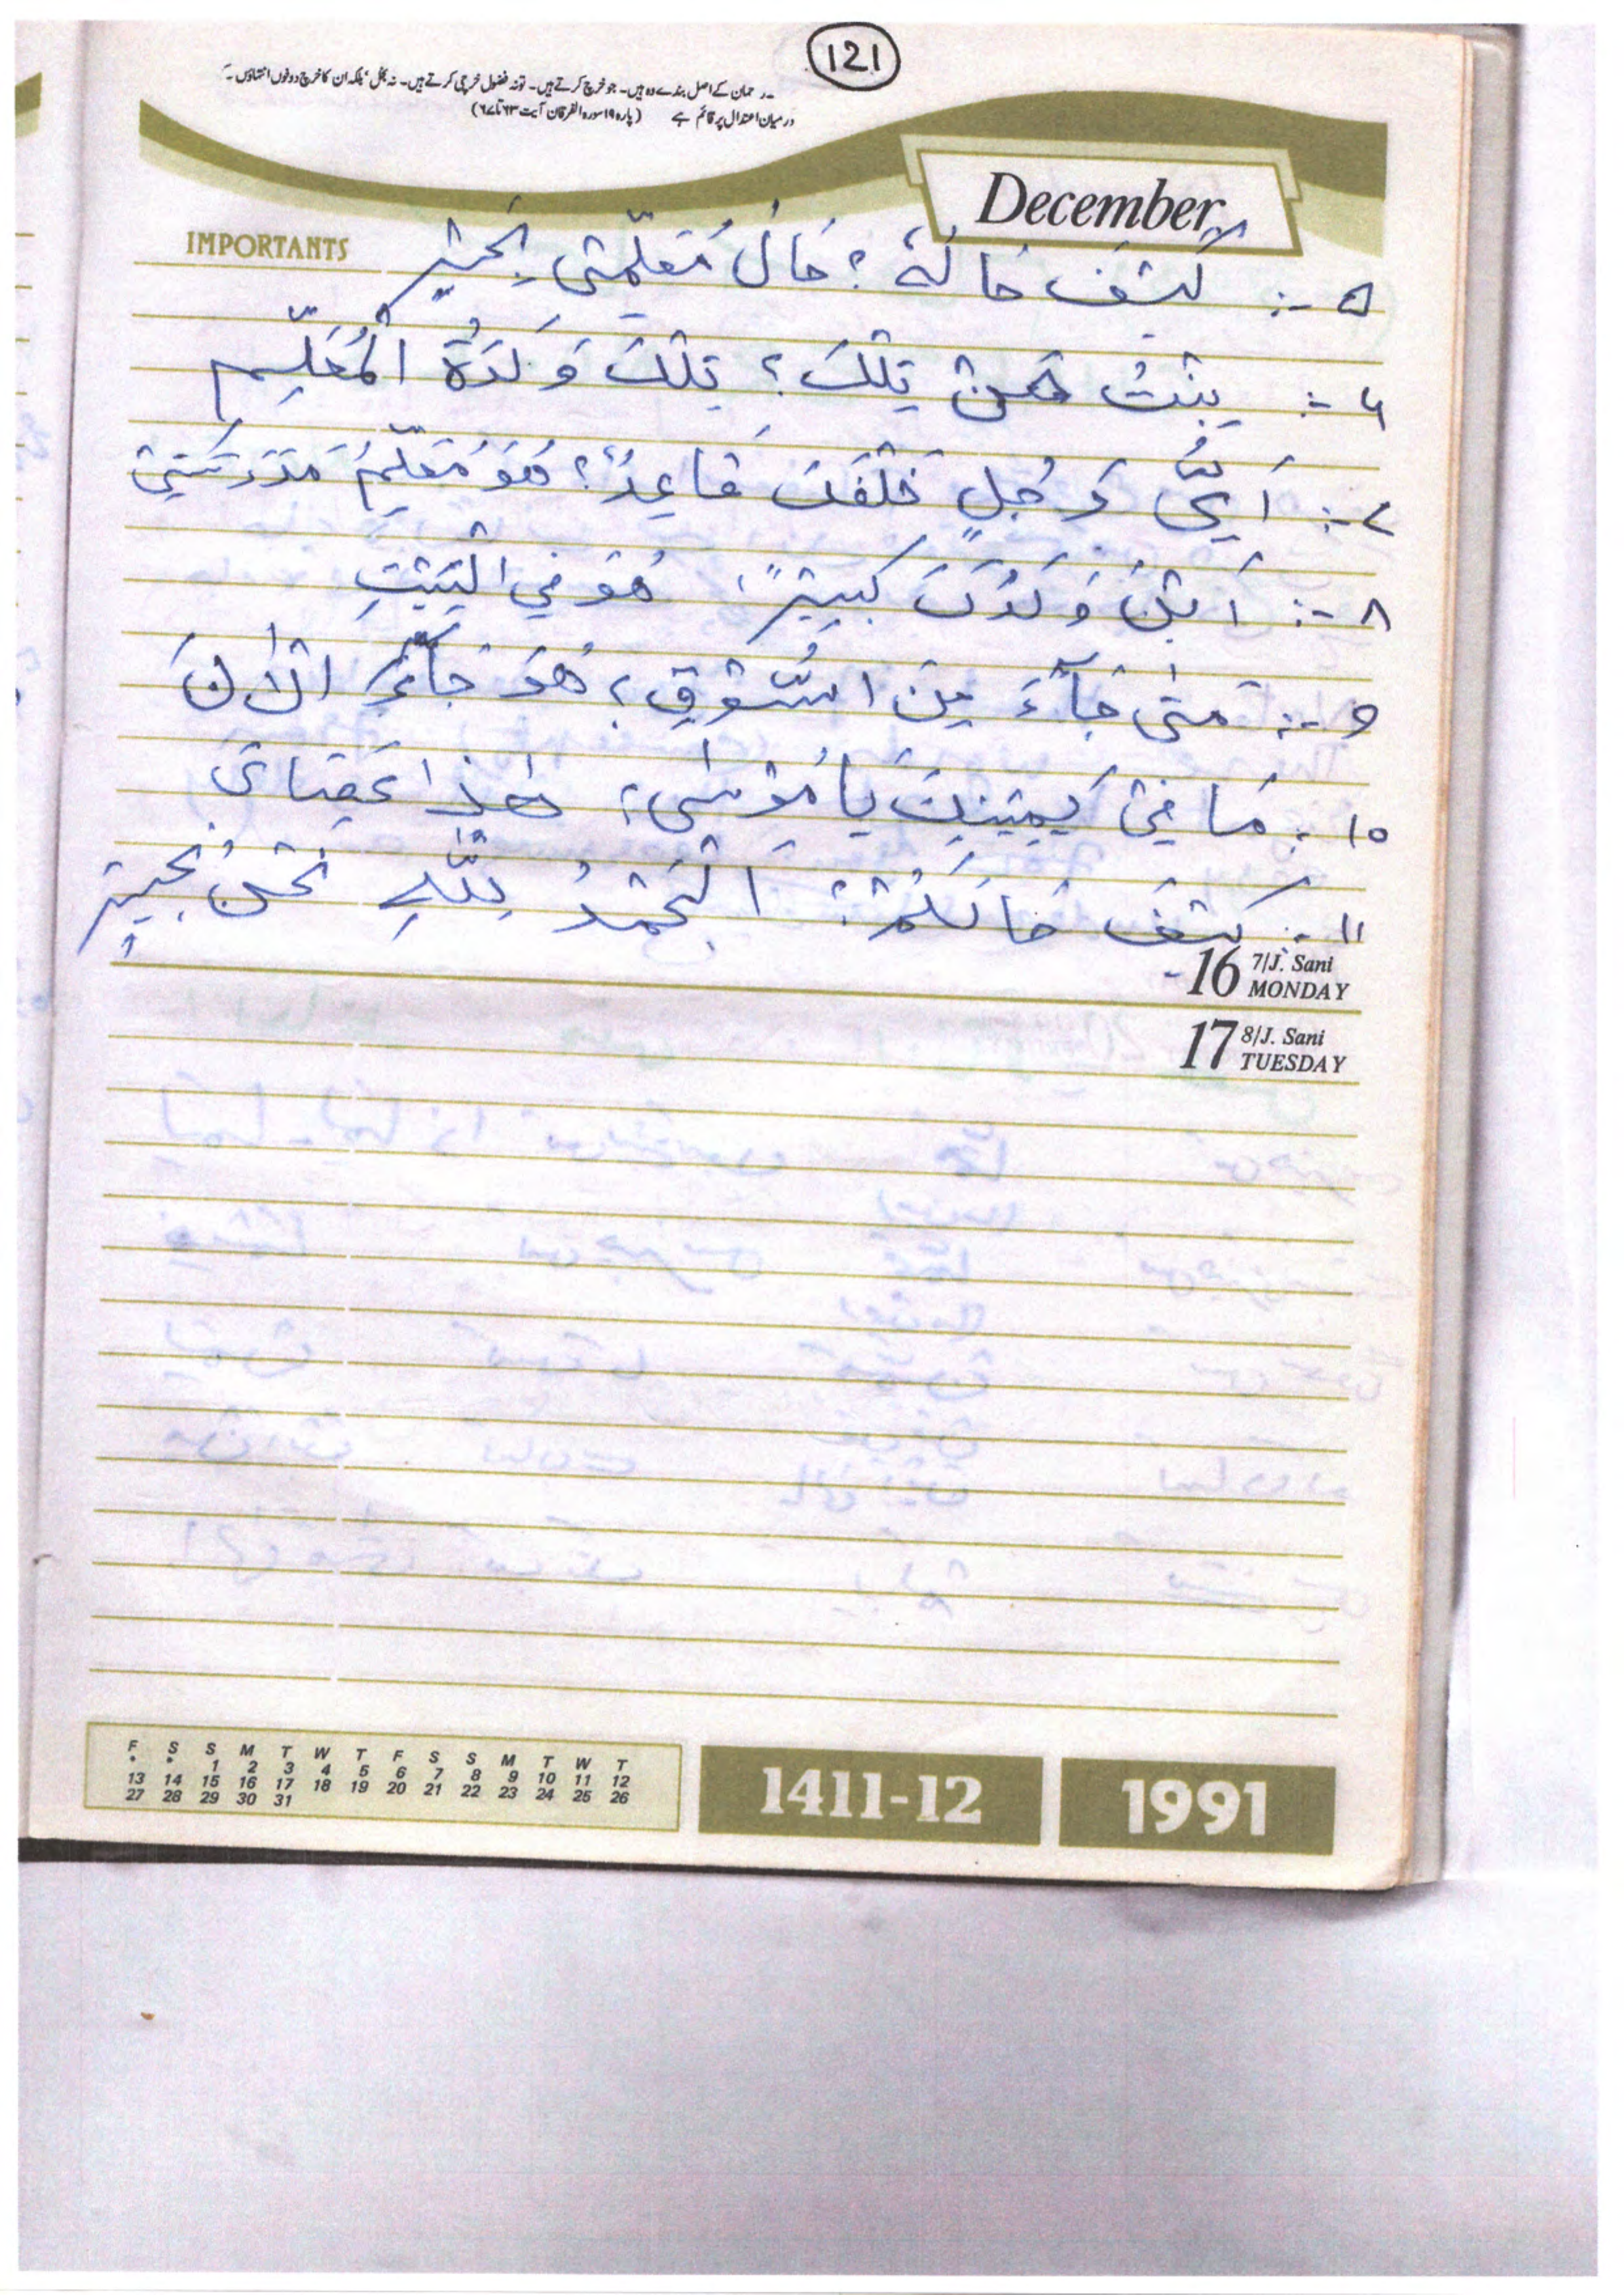 121
رحمان کے اصل بندے وہ ہیں۔ جو خرچ کرتے ہیں۔ تو نہ فضول خرچی کرتے ہیں۔ نہ بخل، بلکہ ان کا خرچ دونوں انتہاؤں کے
درمیان اعتدال پر قائم ہے (پارہ ۱۹ سورہ الفرقان آیت ۶۳ تا ۶۷)
December
IMPORTANTS
۵ -: كَيْفَ حَالُهُ؟ حَالُ مُعَلِّمَتِى بِخَيْرٍ
۶ -: بِنْتُ مَنْ تِلْكَ؟ تِلْكَ وَلَدَةُ الْمُعَلِّمِ
۷ -: اَىُّ رَجُلٍ خَلْفَكَ قَاعِدٌ؟ هُوَ مُعَلِّمُ مَدْرَسَتِىْ
۸ -: اَيْنَ وَلَدُكَ كَبِيْرٌ؟ هُوَ فِي الْبَيْتِ
۹ -: مَتٰى جَآءَ مِنَ السُّوْقِ؟ هُوَ جَآءَ الْاٰنَ
۱۰ -: مَا فِىْ يَمِيْنِكَ يَا مُوْسٰى؟ هٰذَا عَصَاىَ
۱۱ -: كَيْفَ حَالُكُمْ؟ اَلْحَمْدُ لِلّٰهِ نَحْنُ بِخَيْرٍ
16 7/J. Sani MONDAY
17 8/J. Sani TUESDAY
F S S M T W T F S S M T W T
* * 1 2 3 4 5 6 7 8 9 10 11 12
13 14 15 16 17 18 19 20 21 22 23 24 25 26
27 28 29 30 31
1411-12 1991